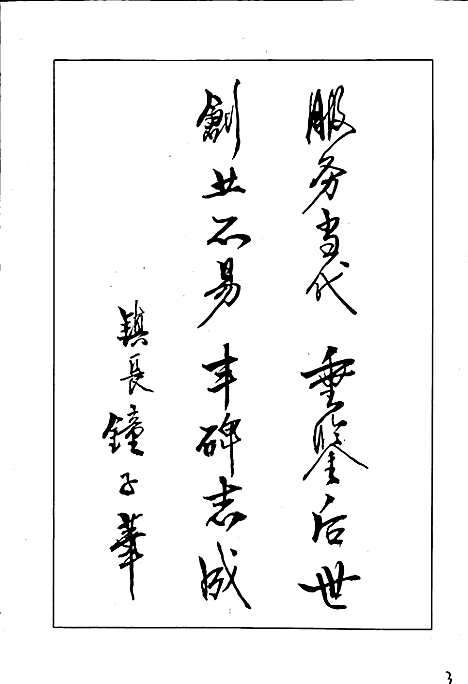 服务当代 垂鉴后世
創业不易 丰碑志成
鎮長 鐘子華
3